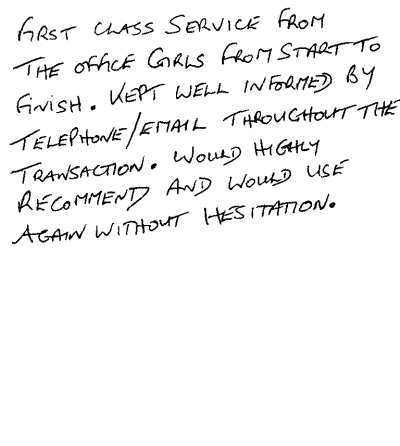 FIRST CLASS SERVICE FROM
THE OFFICE GIRLS FROM START TO
FINISH. KEPT WELL INFORMED BY
TELEPHONE/EMAIL THROUGHOUT THE
TRANSACTION. WOULD HIGHLY
RECOMMEND AND WOULD USE
AGAIN WITHOUT HESITATION.